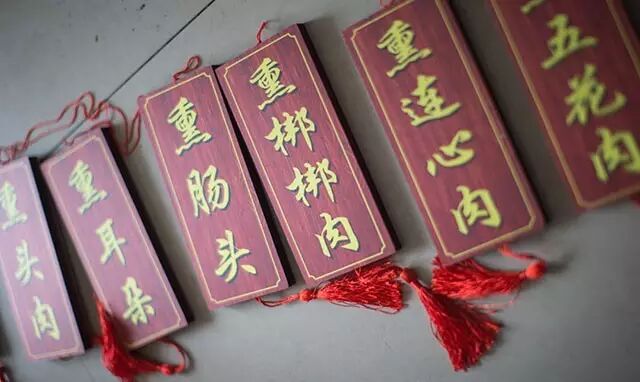 熏头肉
熏耳朵
熏肠头
熏梆梆肉
熏连心肉
五花肉